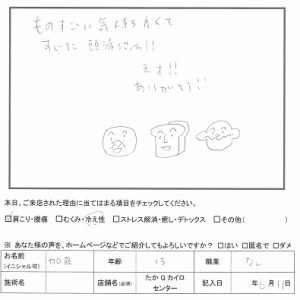 ものすごい気持ち良くて
すぐに
天才!!
ありがとう!!
本日、ご来店された理由に当てはまる項目をチェックしてください。
□肩こり・腰痛 □むくみ・冷え性 □ストレス解消・癒し・デトックス □その他( )
※ あなた様の声を、ホームページなどでご紹介してもよろしいですか? □はい □匿名で □ダメ
お名前 (イニシャル可) 加藤 年齢 13 職業 なし
施術名 店舗名(必須) たかQカイロセンター 記入日 年6月11日